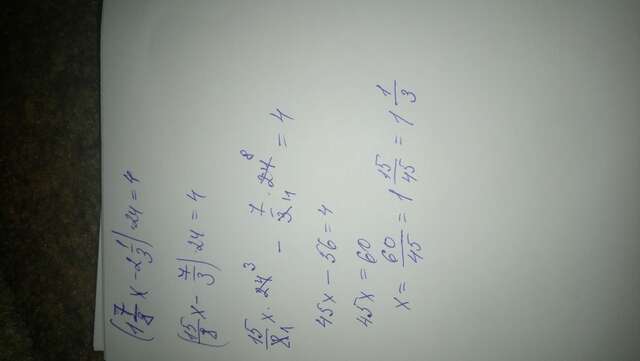 (1 7/8 x - 2 1/3) · 24 = 4
(15/8 x - 7/3) · 24 = 4
15/8 1 x · 24 3 - 7/3 1 · 24 8 = 4
45x - 56 = 4
45x = 60
x = 60/45 = 1 15/45 = 1 1/3